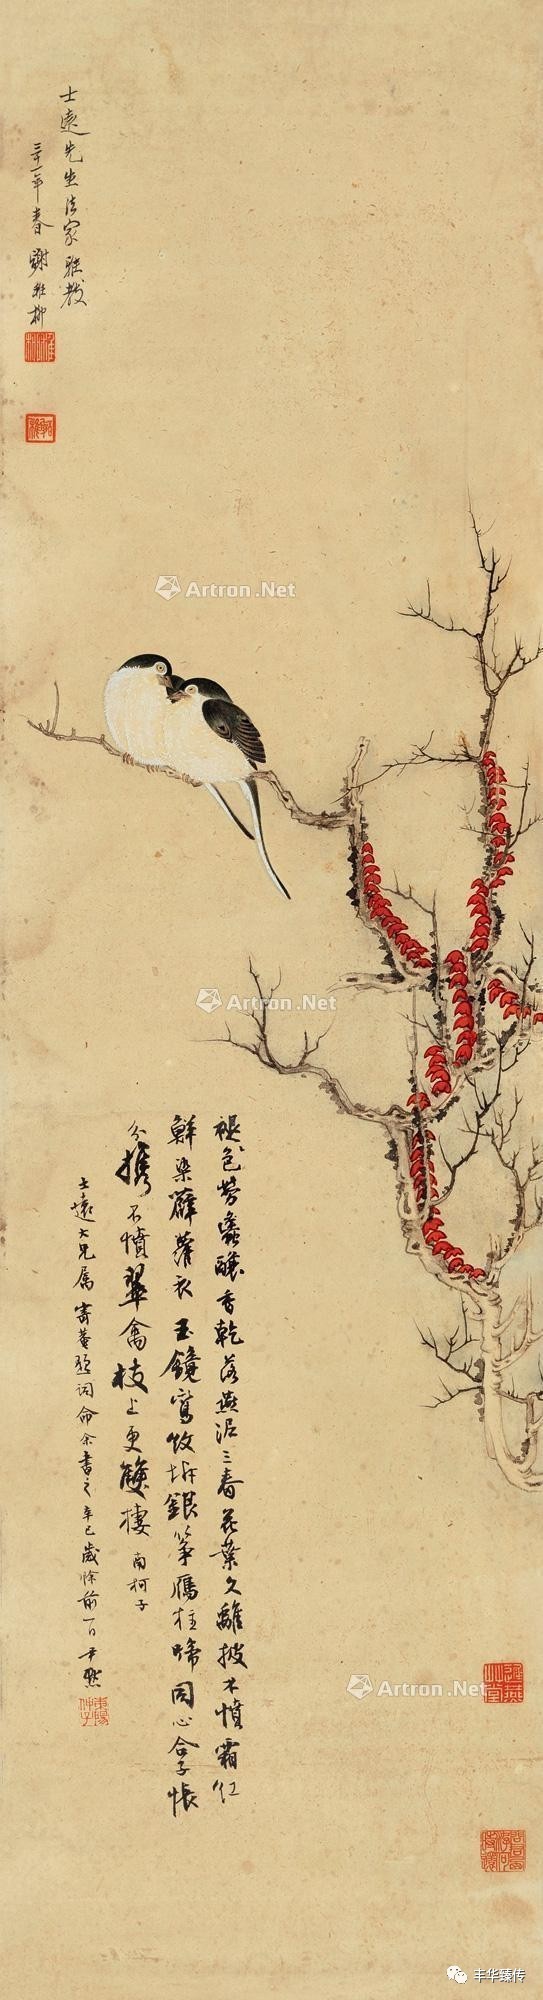 士遠先生法家雅教
三十一年春 謝稚柳
褪色勞蠭釀香乾落燕泥三春花葉久離披不憤霜紅
鮮染薜蘿衣玉鏡鸞收㧊銀箏鴈柱啼同心合子悵
分攜不憤翠禽枝上更雙棲 南柯子
士遠大兄屬 寄菴題詞命余書之辛巳歲除前一日尹默
Artron.Net
Artron.Net
Artron.Net
丰华臻传